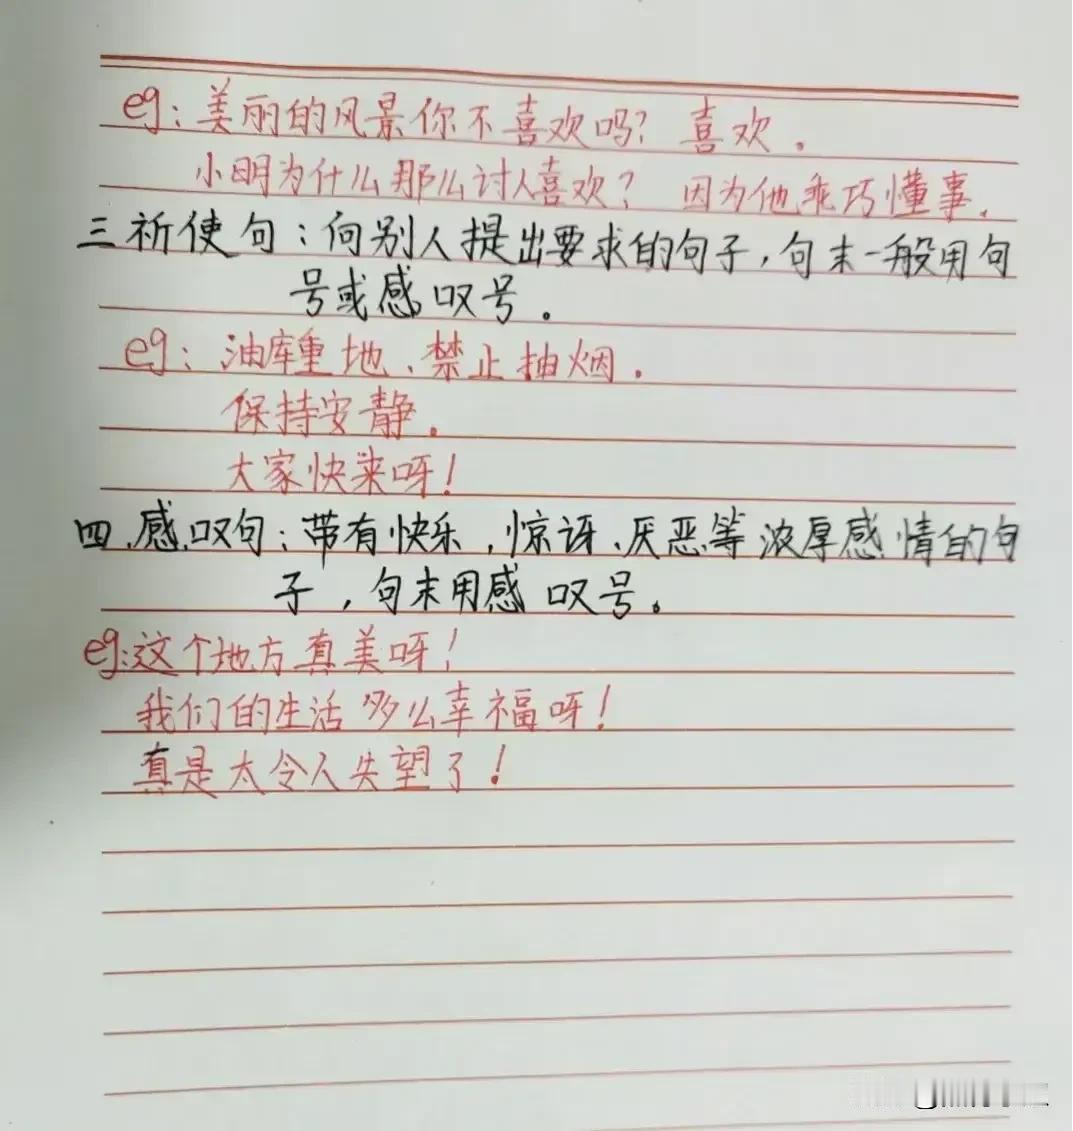 eg：美丽的风景你不喜欢吗？ 喜欢．
小明为什么那么讨人喜欢？ 因为他乖巧懂事．
三祈使句：向别人提出要求的句子，句末一般用句
号或感叹号。
eg：油库重地、禁止抽烟．
保持安静．
大家快来呀！
四、感叹句：带有快乐，惊讶、厌恶等浓厚感情的句
子，句末用感叹号。
eg:这个地方真美呀！
我们的生活多么幸福呀！
真是太令人失望了！